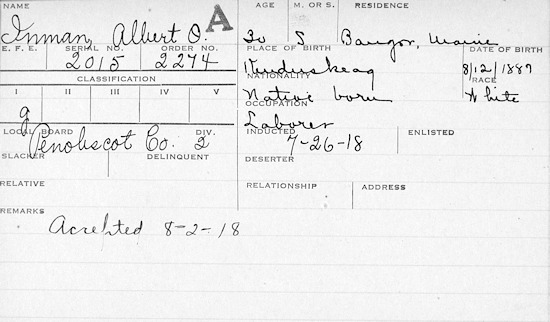 NAME AGE M. OR S. RESIDENCE
Inman, Albert O. A 30 S Bangor, Maine
E. F. E. SERIAL NO. ORDER NO. PLACE OF BIRTH DATE OF BIRTH
2015 2274 Kenduskeag 8/12/1887
CLASSIFICATION NATIONALITY RACE
I II III IV V Native born White
OCCUPATION
g Laborer
LOCAL BOARD DIV. INDUCTED ENLISTED
Penobscot Co. 2 7-26-18
SLACKER DELINQUENT DESERTER
RELATIVE RELATIONSHIP ADDRESS
REMARKS
Accepted 8-2-18